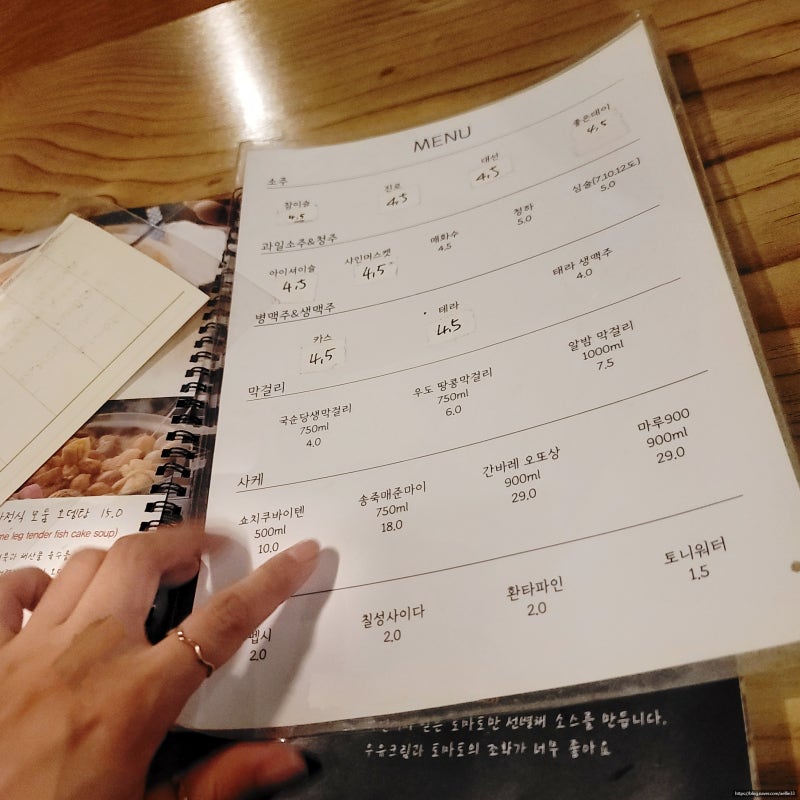 MENU
소주
참이슬
4.5
진로
4.5
대선
4.5
좋은데이
4.5
과일소주&청주
아이셔이슬
4.5
샤인머스켓
4.5
매화수
4.5
청하
5.0
심술(7.10.12도)
5.0
병맥주&생맥주
카스
4.5
테라
4.5
테라 생맥주
4.0
막걸리
국순당생막걸리
750ml
4.0
우도 땅콩막걸리
750ml
6.0
알밤 막걸리
1000ml
7.5
사케
쇼치쿠바이텐
500ml
10.0
송죽매준마이
750ml
18.0
간바레 오또상
900ml
29.0
마루900
900ml
29.0
펩시
2.0
칠성사이다
2.0
환타파인
2.0
토니워터
1.5
모둠 오뎅탕 15.0
leg tender fish cake soup)
토마토만 선별해 소스를 만듭니다.
우유크림과 토마토의 조화가 너무 좋아요
https://blog.naver.com/aellie33